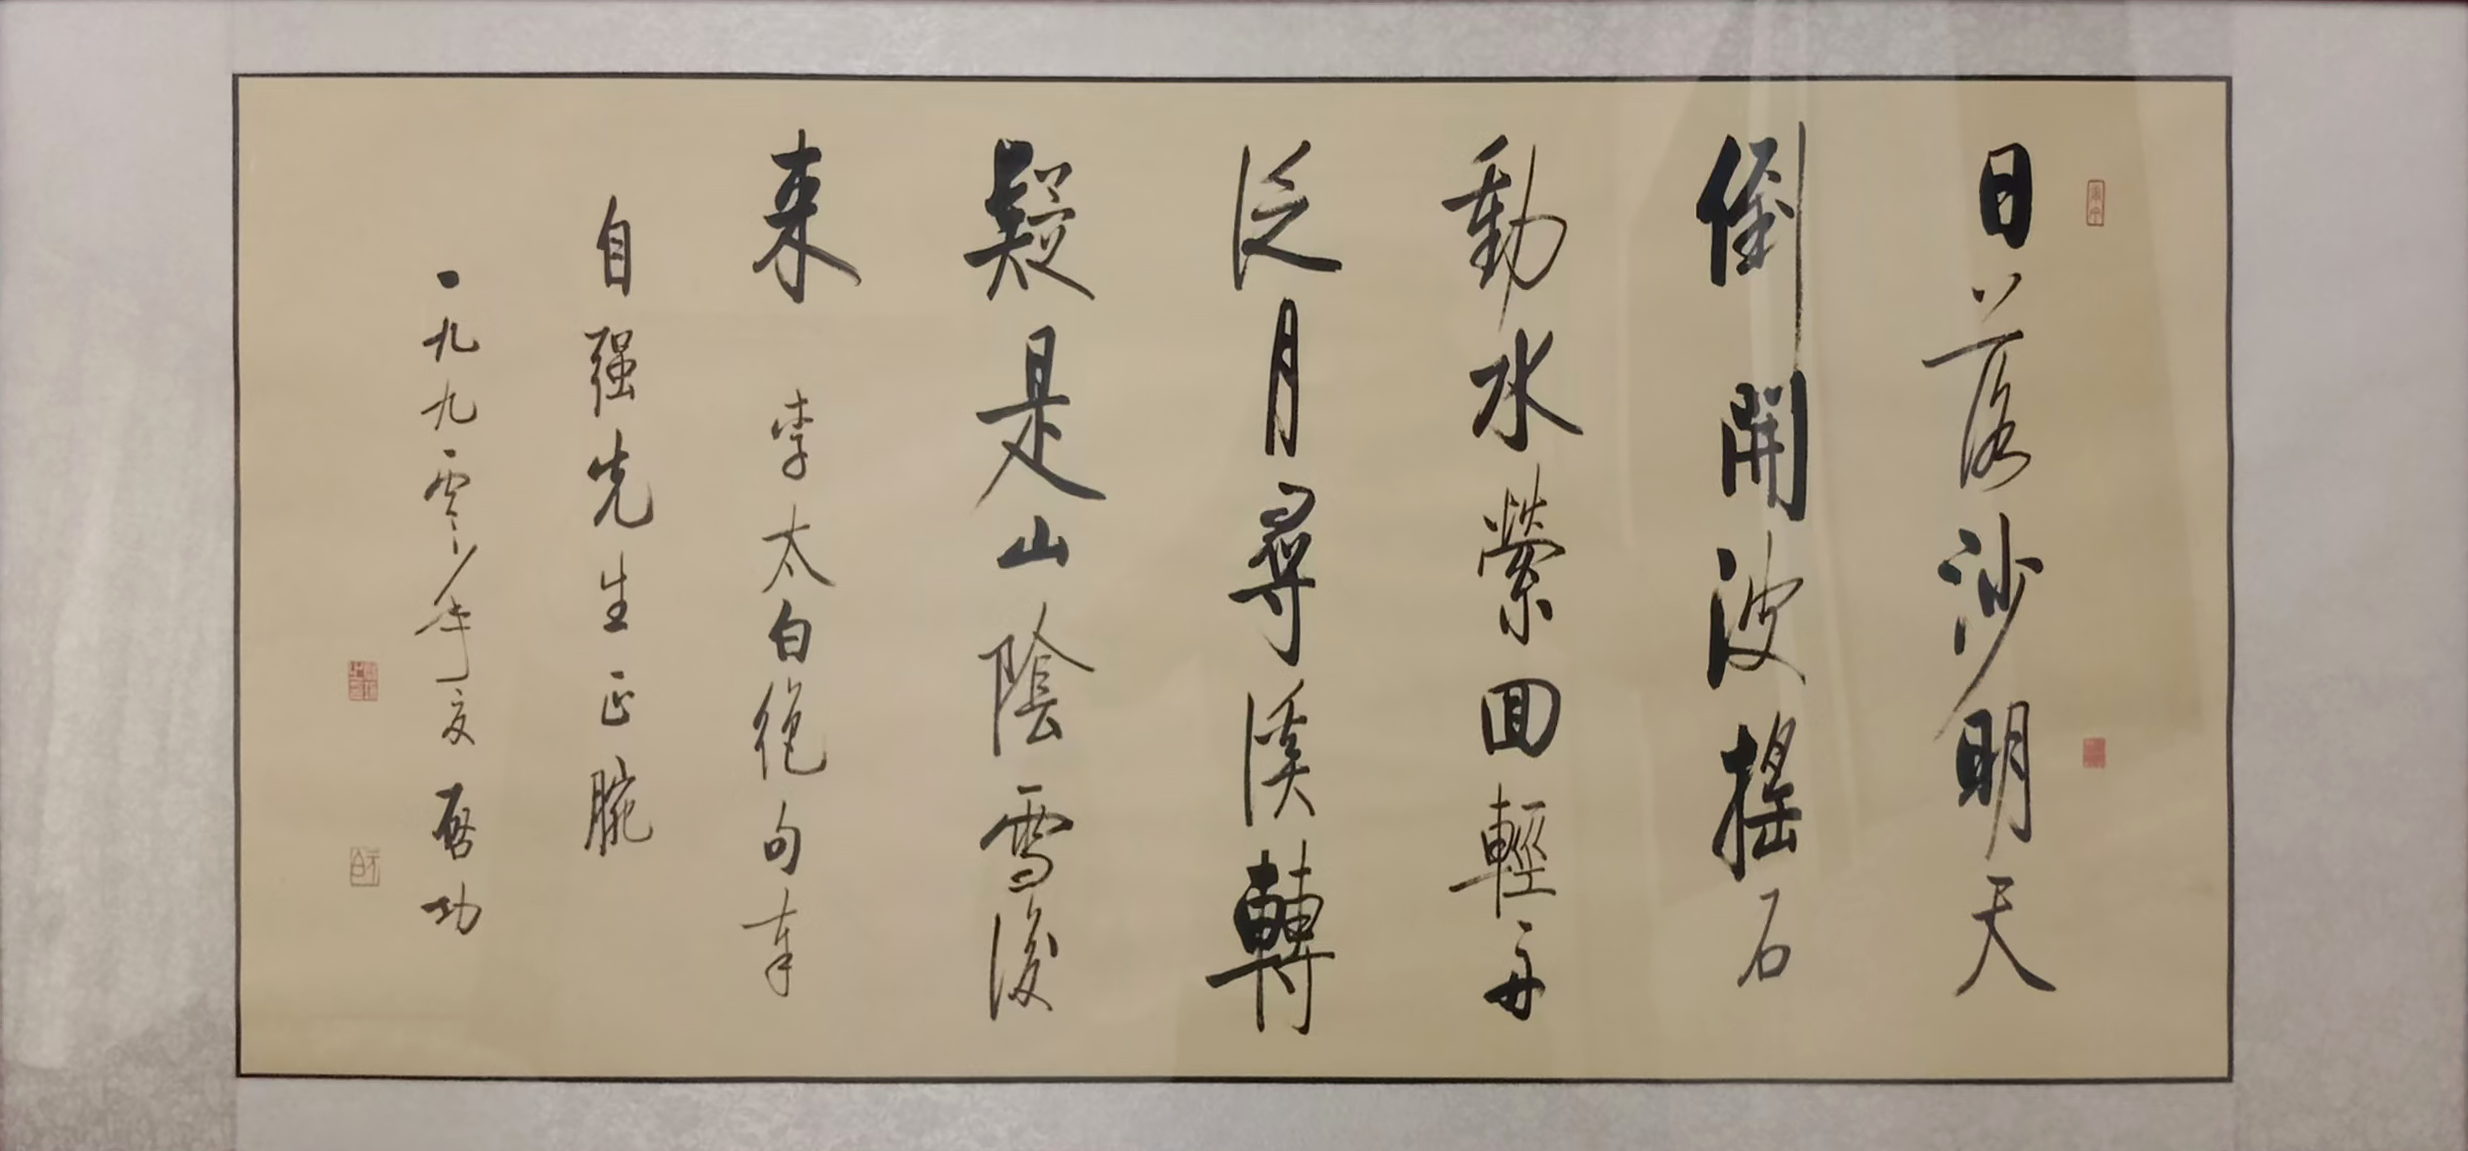 日落沙明天
倒開波搖石
動水縈回輕舟
泛月尋溪轉
疑是山陰雪後
来 李太白绝句奉
自强先生正腕
一九九零年夏 启功